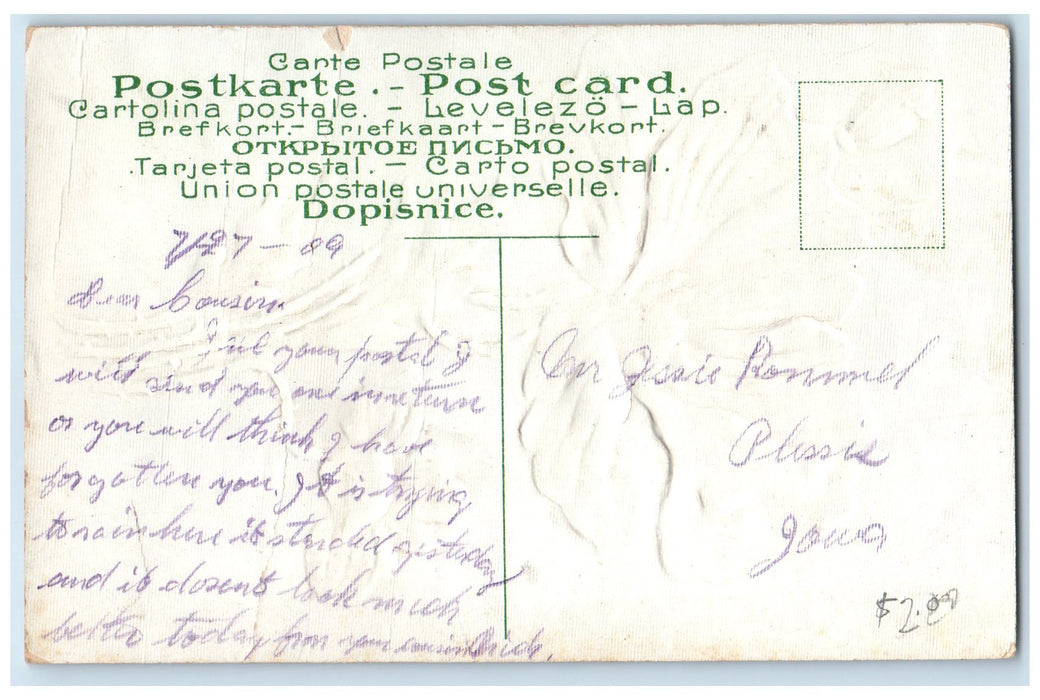 Carte Postale
Postkarte. - Post card.
Cartolina postale. - Levelezö - Lap.
Brefkort. - Briefkaart - Brevkort.
ОТКРЫТОЕ ПИСЬМО.
Tarjeta postal. - Carto postal.
Union postale universelle.
Dopisnice.
7/27 - 09
Dear Cousin
your postal I
will send you one in return
or you will think I have
forgotten you. It is trying
to rain here it started yesterday
and it dosent look much
better today from your cousin
Mr Jessie Rommel
Plessis
Iowa
$2.00